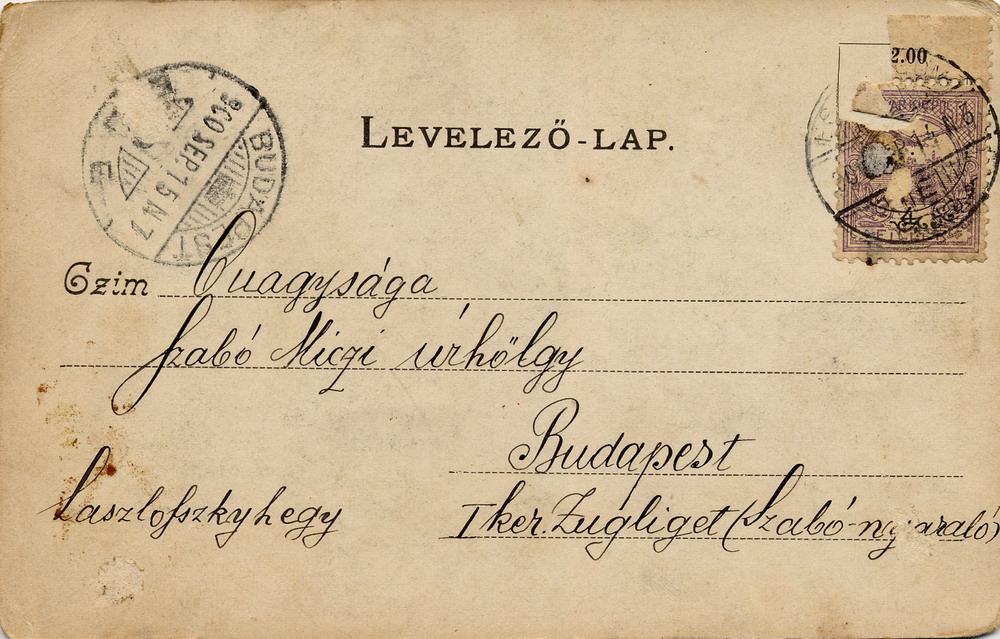 2.00
LEVELEZŐ-LAP.
BUDAPEST
900 SEP. 15 N 7
Czim Önagysága
Szabó Miczi úrhölgy
Budapest
I ker. Zugliget (Szabó-nyaraló)
Laszlofszkyhegy